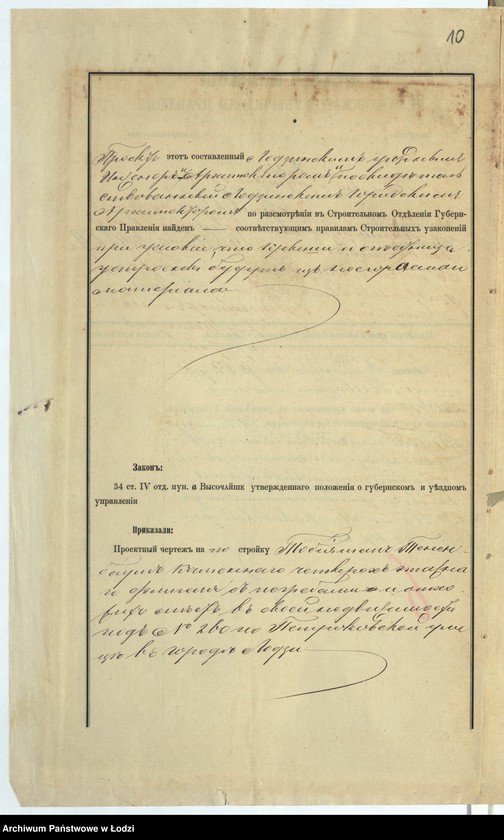 10
Проектъ этотъ составленный Лодзинскимъ городовымъ
Архитекторомъ
Лодзинскимъ Городскимъ
Архитекторомъ по разсмотрѣніи въ Строительномъ Отдѣленіи Губерн-
скаго Правленія найденъ — соотвѣтствующимъ правиламъ Строительныхъ узаконеній
при условіи, что крыши и
устройства будутъ изъ несгораемаго
матеріала
Законъ:
34 ст. IV отд. пун. а Высочайше утвержденнаго положенія о губернскомъ и уѣздномъ
управленіи
Приказали:
Проектный чертежъ на по стройку
каменнаго четырехъ этажна
го флигеля, съ погребами и
въ своей недвижимости
подъ № 260 по Петроковской ули
цѣ въ городѣ Лодзи
Archiwum Państwowe w Łodzi